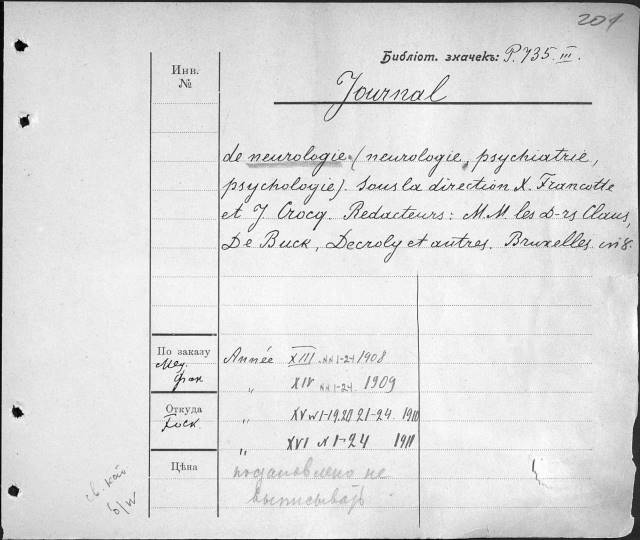 201
Библіот. значекъ: P.735.III.
Инв.
№
Journal
de neurologie (neurologie, psychiatrie,
psychologie). Sous la direction X. Francotte
et J. Crocq. Redacteurs: M.M. les D-rs Claus,
De Buck, Decroly et autres. Bruxelles in 8.
По заказу
Мед.
фак
Année XIII NN 1-24 1908
„ XIV NN 1-24. 1909
Откуда
Госк.
„ XV N 1-19.20 21-24. 1910
„ XVI N 1-24 1911
Цѣна
постановлено не
выписывать
б/н